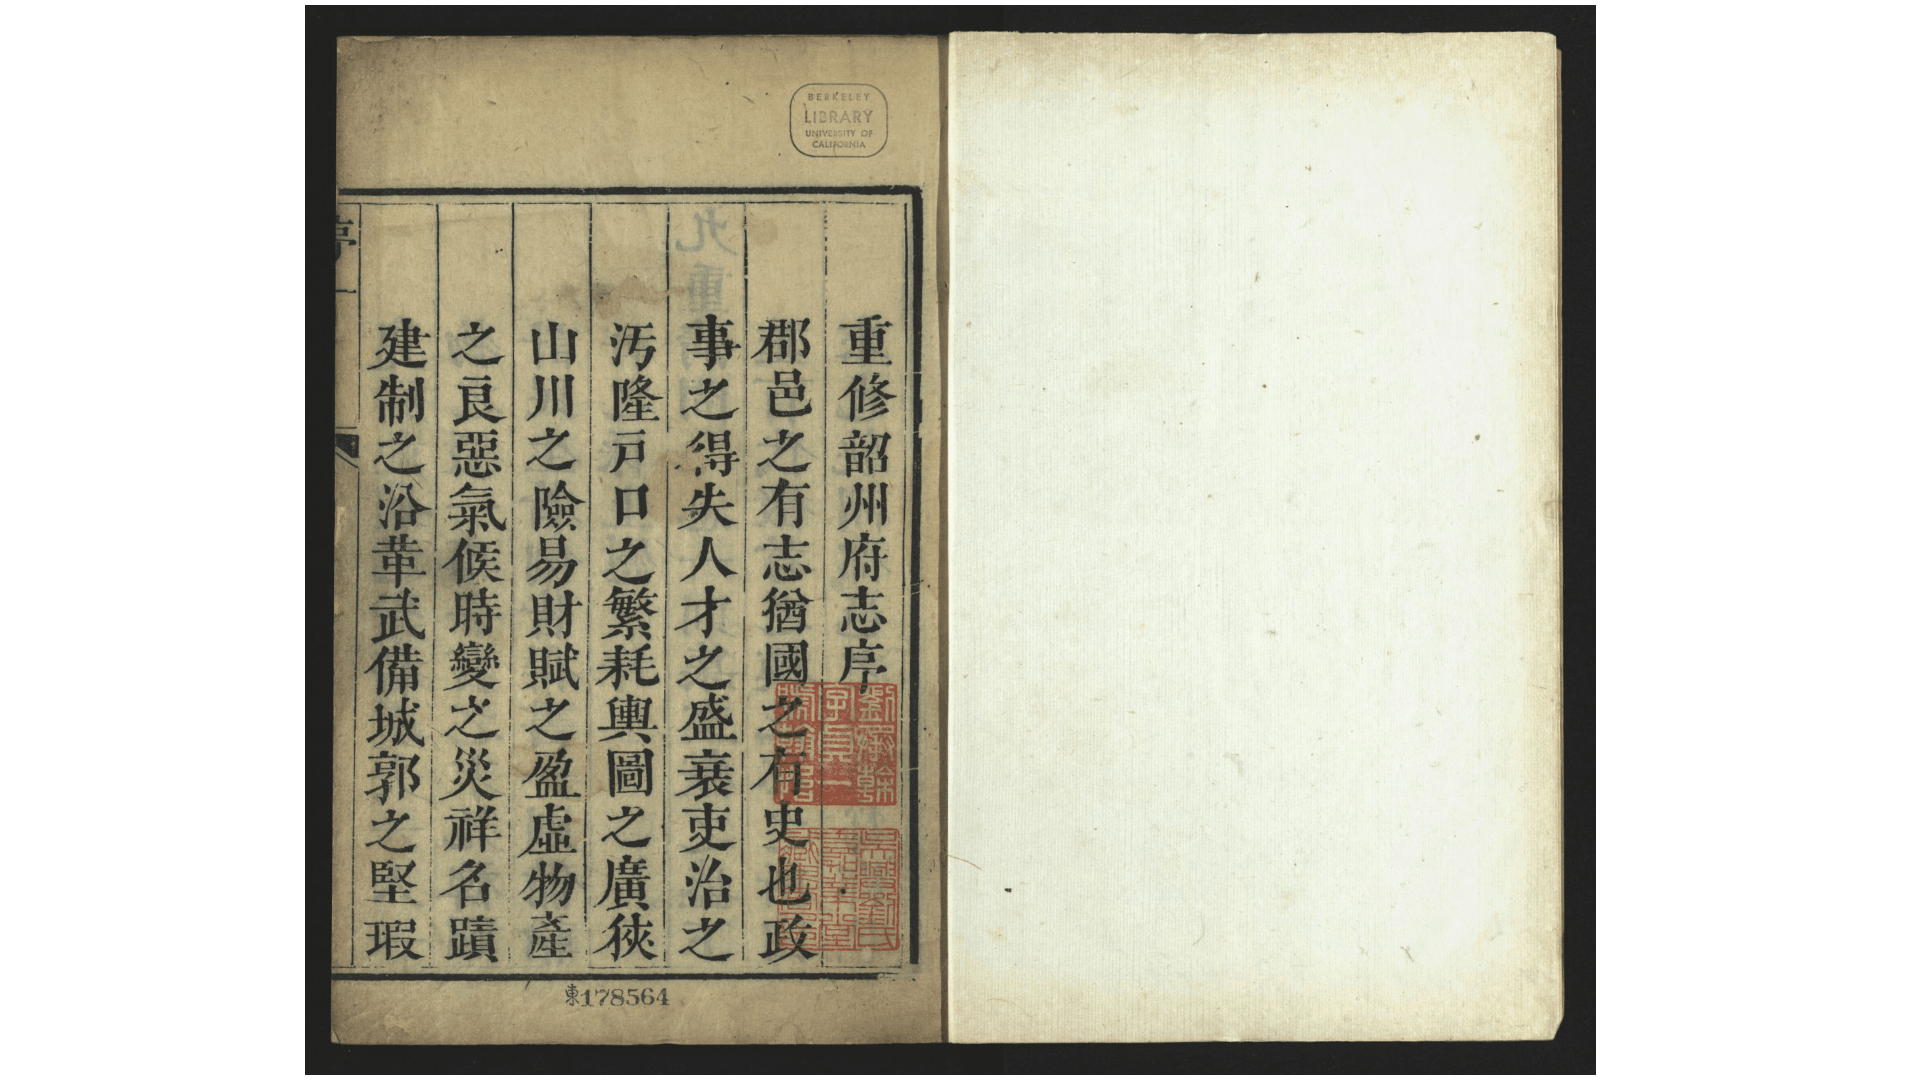 BERKELEY
LIBRARY
UNIVERSITY OF
CALIFORNIA
重修韶州府志序
郡邑之有志猶國之有史也政
事之得失人才之盛衰吏治之
汚隆戸口之繁耗輿圖之廣狹
山川之險易財賦之盈虛物產
之良惡氣候時變之災祥名蹟
建制之沿革武備城郭之堅瑕
劉承幹
字貞一
號翰怡
吳興劉氏
嘉業堂
藏書印
東178564